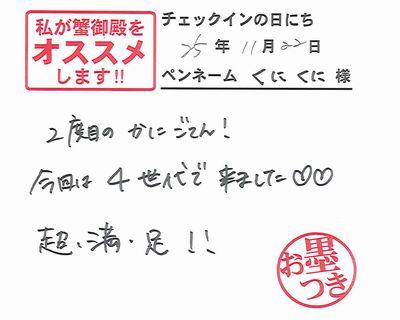 私が蟹御殿を
オススメ
します!!
チェックインの日にち
25年11月22日
ペンネーム くにくに 様
2度目の かにごてん!
今回は 4世代で 来ました♡♡
超、満・足!!
お墨つき